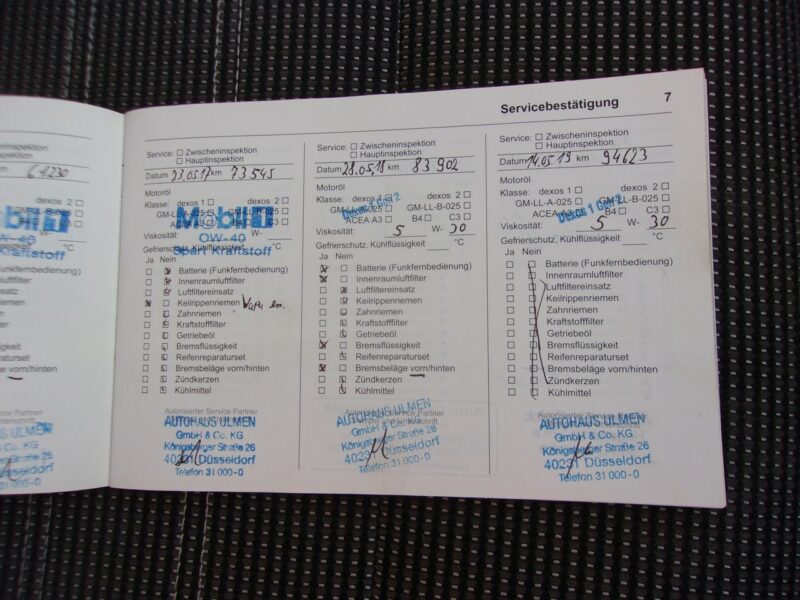 Servicebestätigung 7
61230
0W-40
°C
Spart Kraftstoff
Service: Zwischeninspektion
Hauptinspektion
Datum 23.05.17 km 73545
Motoröl
Klasse: dexos 1 dexos 2
GM-LL-A-025 GM-LL-B-025
ACEA A3 B4 C3
Mobil 1
Viskosität: W-
0W-40
Gefrierschutz, Kühlflüssigkeit °C
Spart Kraftstoff
Ja Nein
Batterie (Funkfernbedienung)
Innenraumluftfilter
Luftfiltereinsatz
Keilrippenriemen
Zahnriemen
Kraftstofffilter
Getriebeöl
Bremsflüssigkeit
Reifenreparaturset
Bremsbeläge vorn/hinten
Zündkerzen
Kühlmittel
Autorisierter Service Partner
AUTOHAUS ULMEN
GmbH & Co. KG
Königsberger Straße 26
40231 Düsseldorf
Telefon 31 000-0
Service: Zwischeninspektion
Hauptinspektion
Datum 28.05.18 km 83902
Motoröl
Klasse: dexos 1 dexos 2
GM-LL-A-025 GM-LL-B-025
ACEA A3 B4 C3
Viskosität: 5 W- 30
Gefrierschutz, Kühlflüssigkeit °C
Ja Nein
Batterie (Funkfernbedienung)
Innenraumluftfilter
Luftfiltereinsatz
Keilrippenriemen
Zahnriemen
Kraftstofffilter
Getriebeöl
Bremsflüssigkeit
Reifenreparaturset
Bremsbeläge vorn/hinten
Zündkerzen
Kühlmittel
Autorisierter Service Partner
AUTOHAUS ULMEN
GmbH & Co. KG
Königsberger Straße 26
40231 Düsseldorf
Telefon 31 000-0
Service: Zwischeninspektion
Hauptinspektion
Datum 14.05.19 km 94623
Motoröl
Klasse: dexos 1 dexos 2
GM-LL-A-025 GM-LL-B-025
ACEA A3 B4 C3
Dexos 1 Gen 2
Viskosität: 5 W- 30
Gefrierschutz, Kühlflüssigkeit °C
Ja Nein
Batterie (Funkfernbedienung)
Innenraumluftfilter
Luftfiltereinsatz
Keilrippenriemen
Zahnriemen
Kraftstofffilter
Getriebeöl
Bremsflüssigkeit
Reifenreparaturset
Bremsbeläge vorn/hinten
Zündkerzen
Kühlmittel
Autorisierter Service Partner
AUTOHAUS ULMEN
GmbH & Co. KG
Königsberger Straße 26
40231 Düsseldorf
Telefon 31 000-0